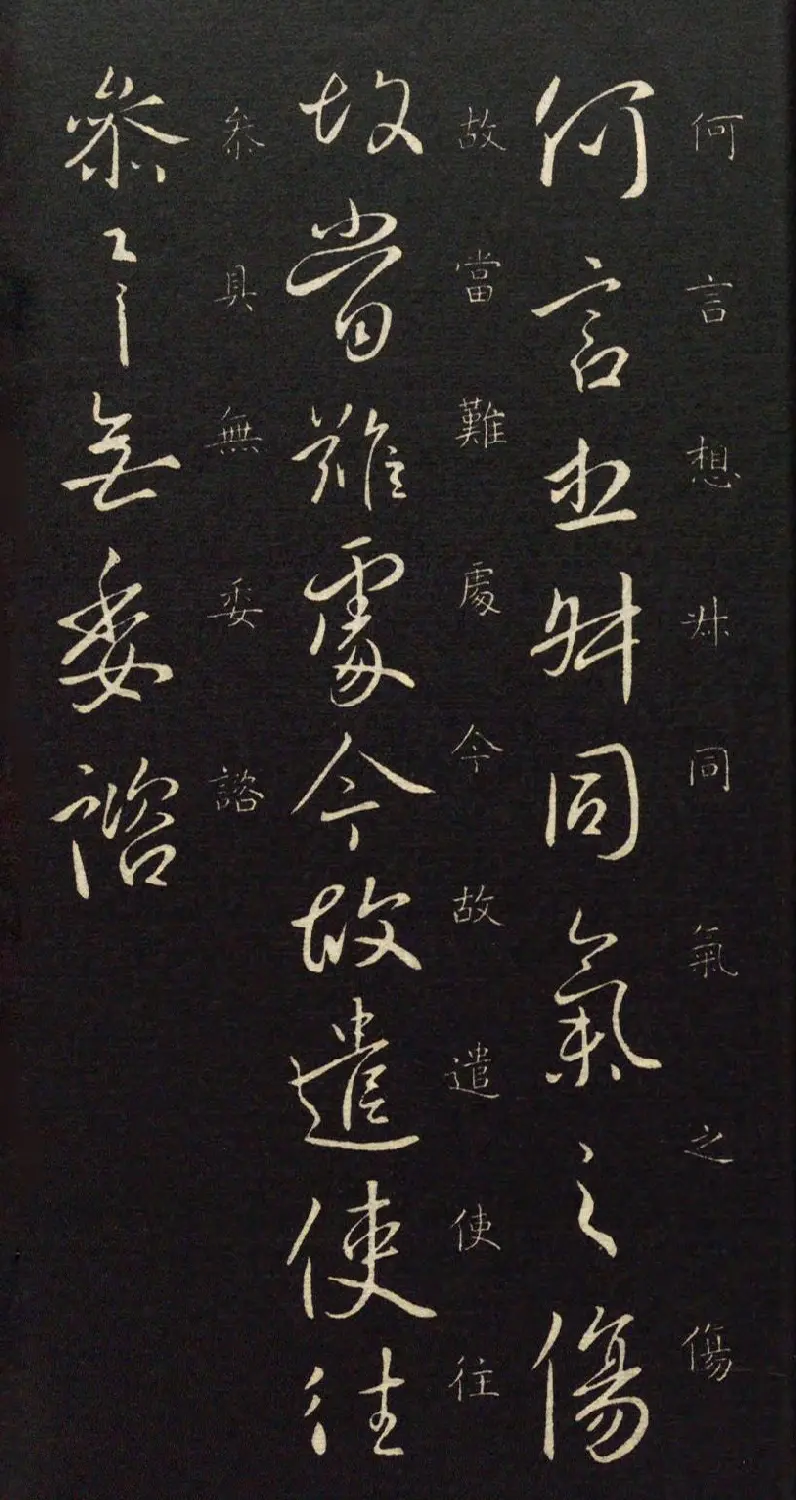 何言想同氣之傷
何言同氣之傷
故當難處今故遣使往
故當難處今故遣使往
叅具無委諮
叅具無委諮